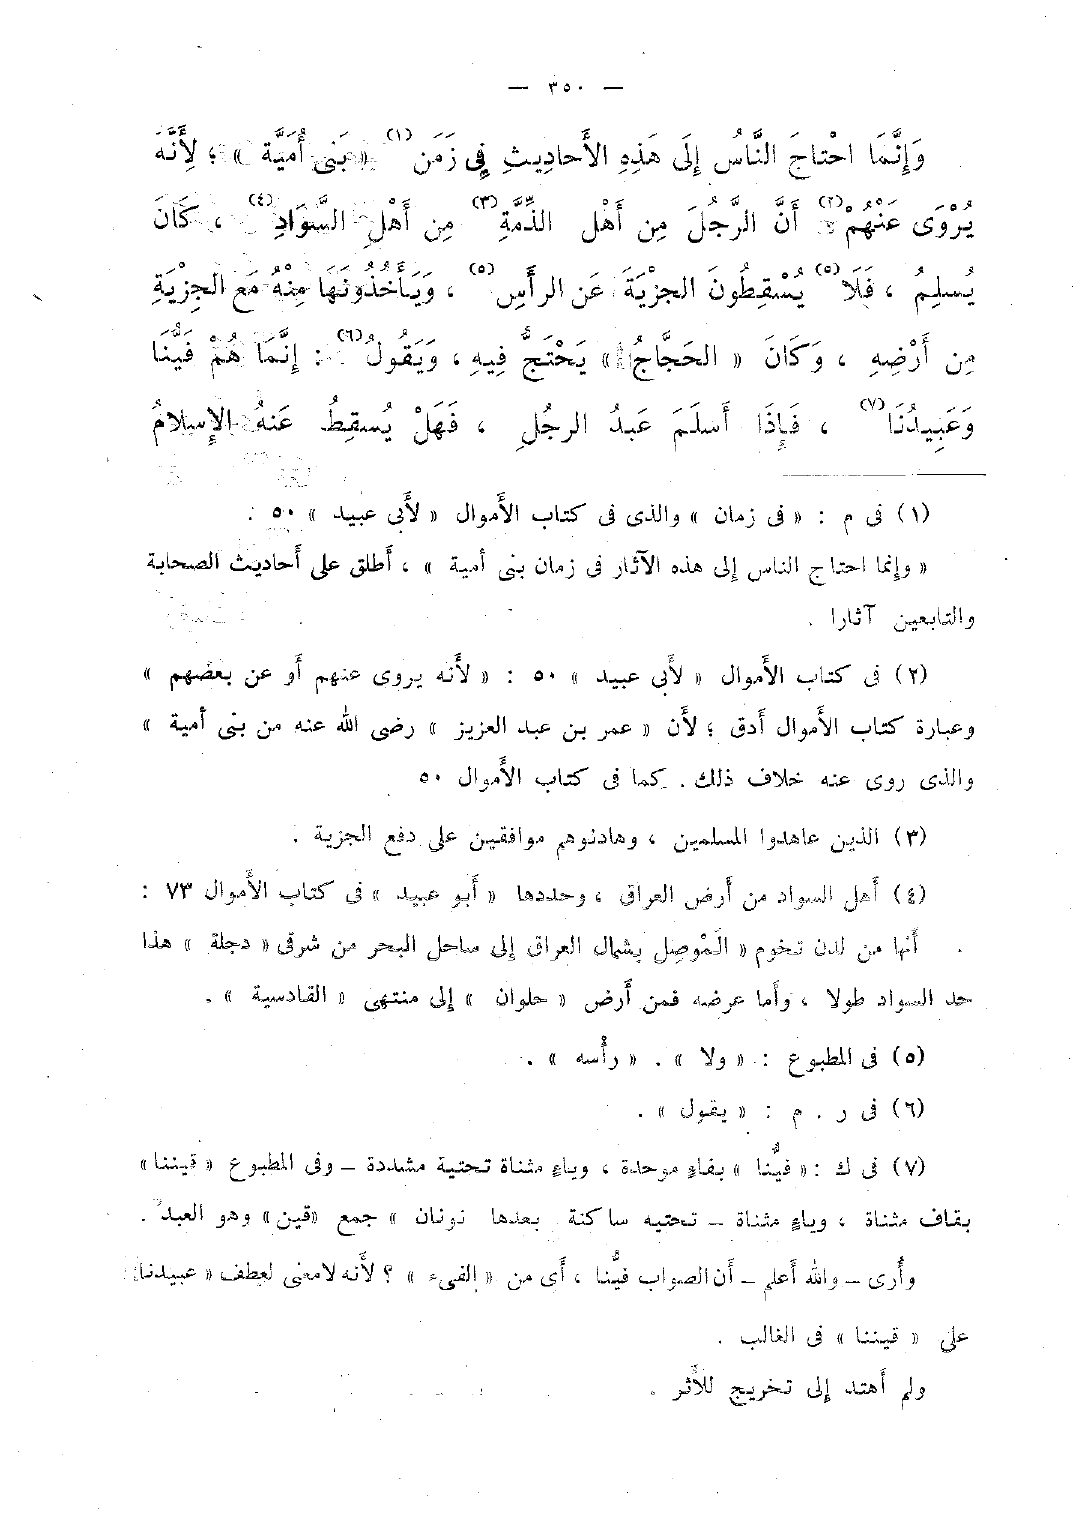 — ٣٥٠ —
وَإِنَّمَا احْتاجَ النَّاسُ إِلَى هَذِهِ الأَحاديثِ فِي زَمَن (١) « بَنِي أُمَيَّة » ؛ لِأَنَّهُ
يُرْوَى عَنْهُمْ (٢) أَنَّ الرَّجُلَ مِن أَهْل الذِّمَّةِ (٣) مِن أَهْلِ السَّوَادِ (٤) ، كَانَ
يُسلِمُ ، فَلَا (٥) يُسْقِطُونَ الجِزْيَةَ عَن الرأَسِ (٥) ، وَيَأْخُذُونَهَا مِنْهُ مَع الجِزْيَةِ
مِن أَرْضِهِ ، وَكَانَ « الحَجَّاجُ » يَحْتَجُّ فِيهِ ، وَيَقُولُ (٦) : إِنَّمَا هُمْ فَيُّنَا
وَعَبِيدُنَا (٧) ، فَإِذَا أَسلَمَ عَبدُ الرجُلِ ، فَهَلْ يُسقِطُ عَنهُ الإِسلامُ
(١) فى م : « فى زمان » والذى فى كتاب الأَموال « لأَبى عبيد » ٥٠ :
« وإنما احتاج الناس إلى هذه الآثار فى زمان بنى أمية » ، أَطلق على أَحاديث الصحابة
والتابعين آثارا .
(٢) فى كتاب الأَموال « لأَبى عبيد » ٥٠ : « لأَنه يروى عنهم أَو عن بعضهم »
وعبارة كتاب الأَموال أَدق ؛ لأَن « عمر بن عبد العزيز » رضى الله عنه من بنى أمية »
والذى روى عنه خلاف ذلك . كما فى كتاب الأَموال ٥٠
(٣) الذين عاهدوا المسلمين ، وهادنوهم موافقين على دفع الجزية .
(٤) أَهل السواد من أَرض العراق ، وحددها « أَبو عبيد » فى كتاب الأَموال ٧٣ :
أَنها من لدن تخوم « الَموْصِل بشمال العراق إلى ساحل البحر من شرقى « دجلة » هذا
حد السواد طولا ، وأَما عرضه فمن أَرض « حلوان » إلى منتهى « القادسية » .
(٥) فى المطبوع : « ولا » . « رأْسه » .
(٦) فى ر . م : « يقول » .
(٧) فى ك : « فيُّنا » بفاءٍ موحدة ، وياءٍ مثناة تحتية مشددة – وفى المطبوع « قيننا »
بقاف مثناة ، وياءٍ مثناة – تحتيه ساكنة بعدها نونان » جمع « قين » وهو العبد .
وأُرى – والله أَعلم – أَن الصواب فيُّنا ، أَى من « الفىء » ؟ لأَنه لامعنى لعطف « عبيدنا »
على « قيننا » فى الغالب .
ولم أَهتد إلى تخريج للأَثر .